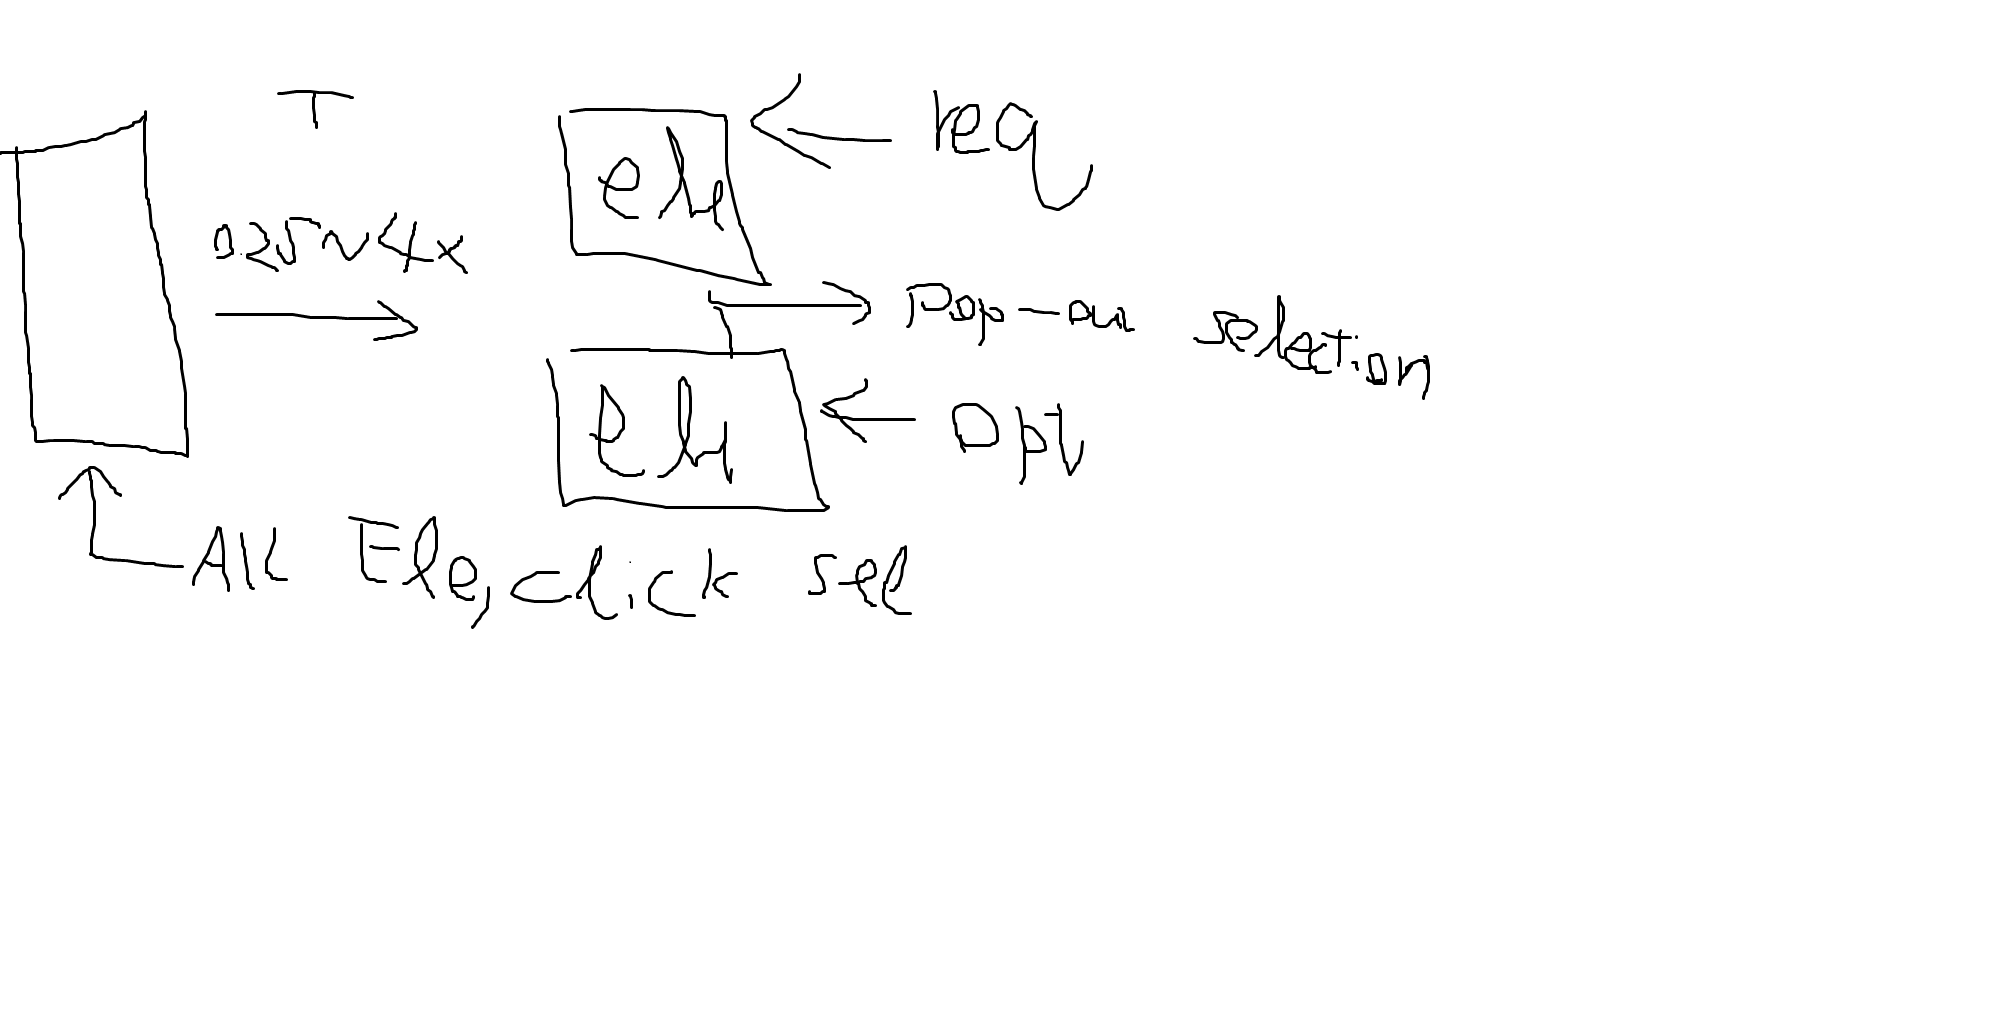 T
req
0.25~4x
ele
Pop-out selection
ele
Opt
All Ele, click sel